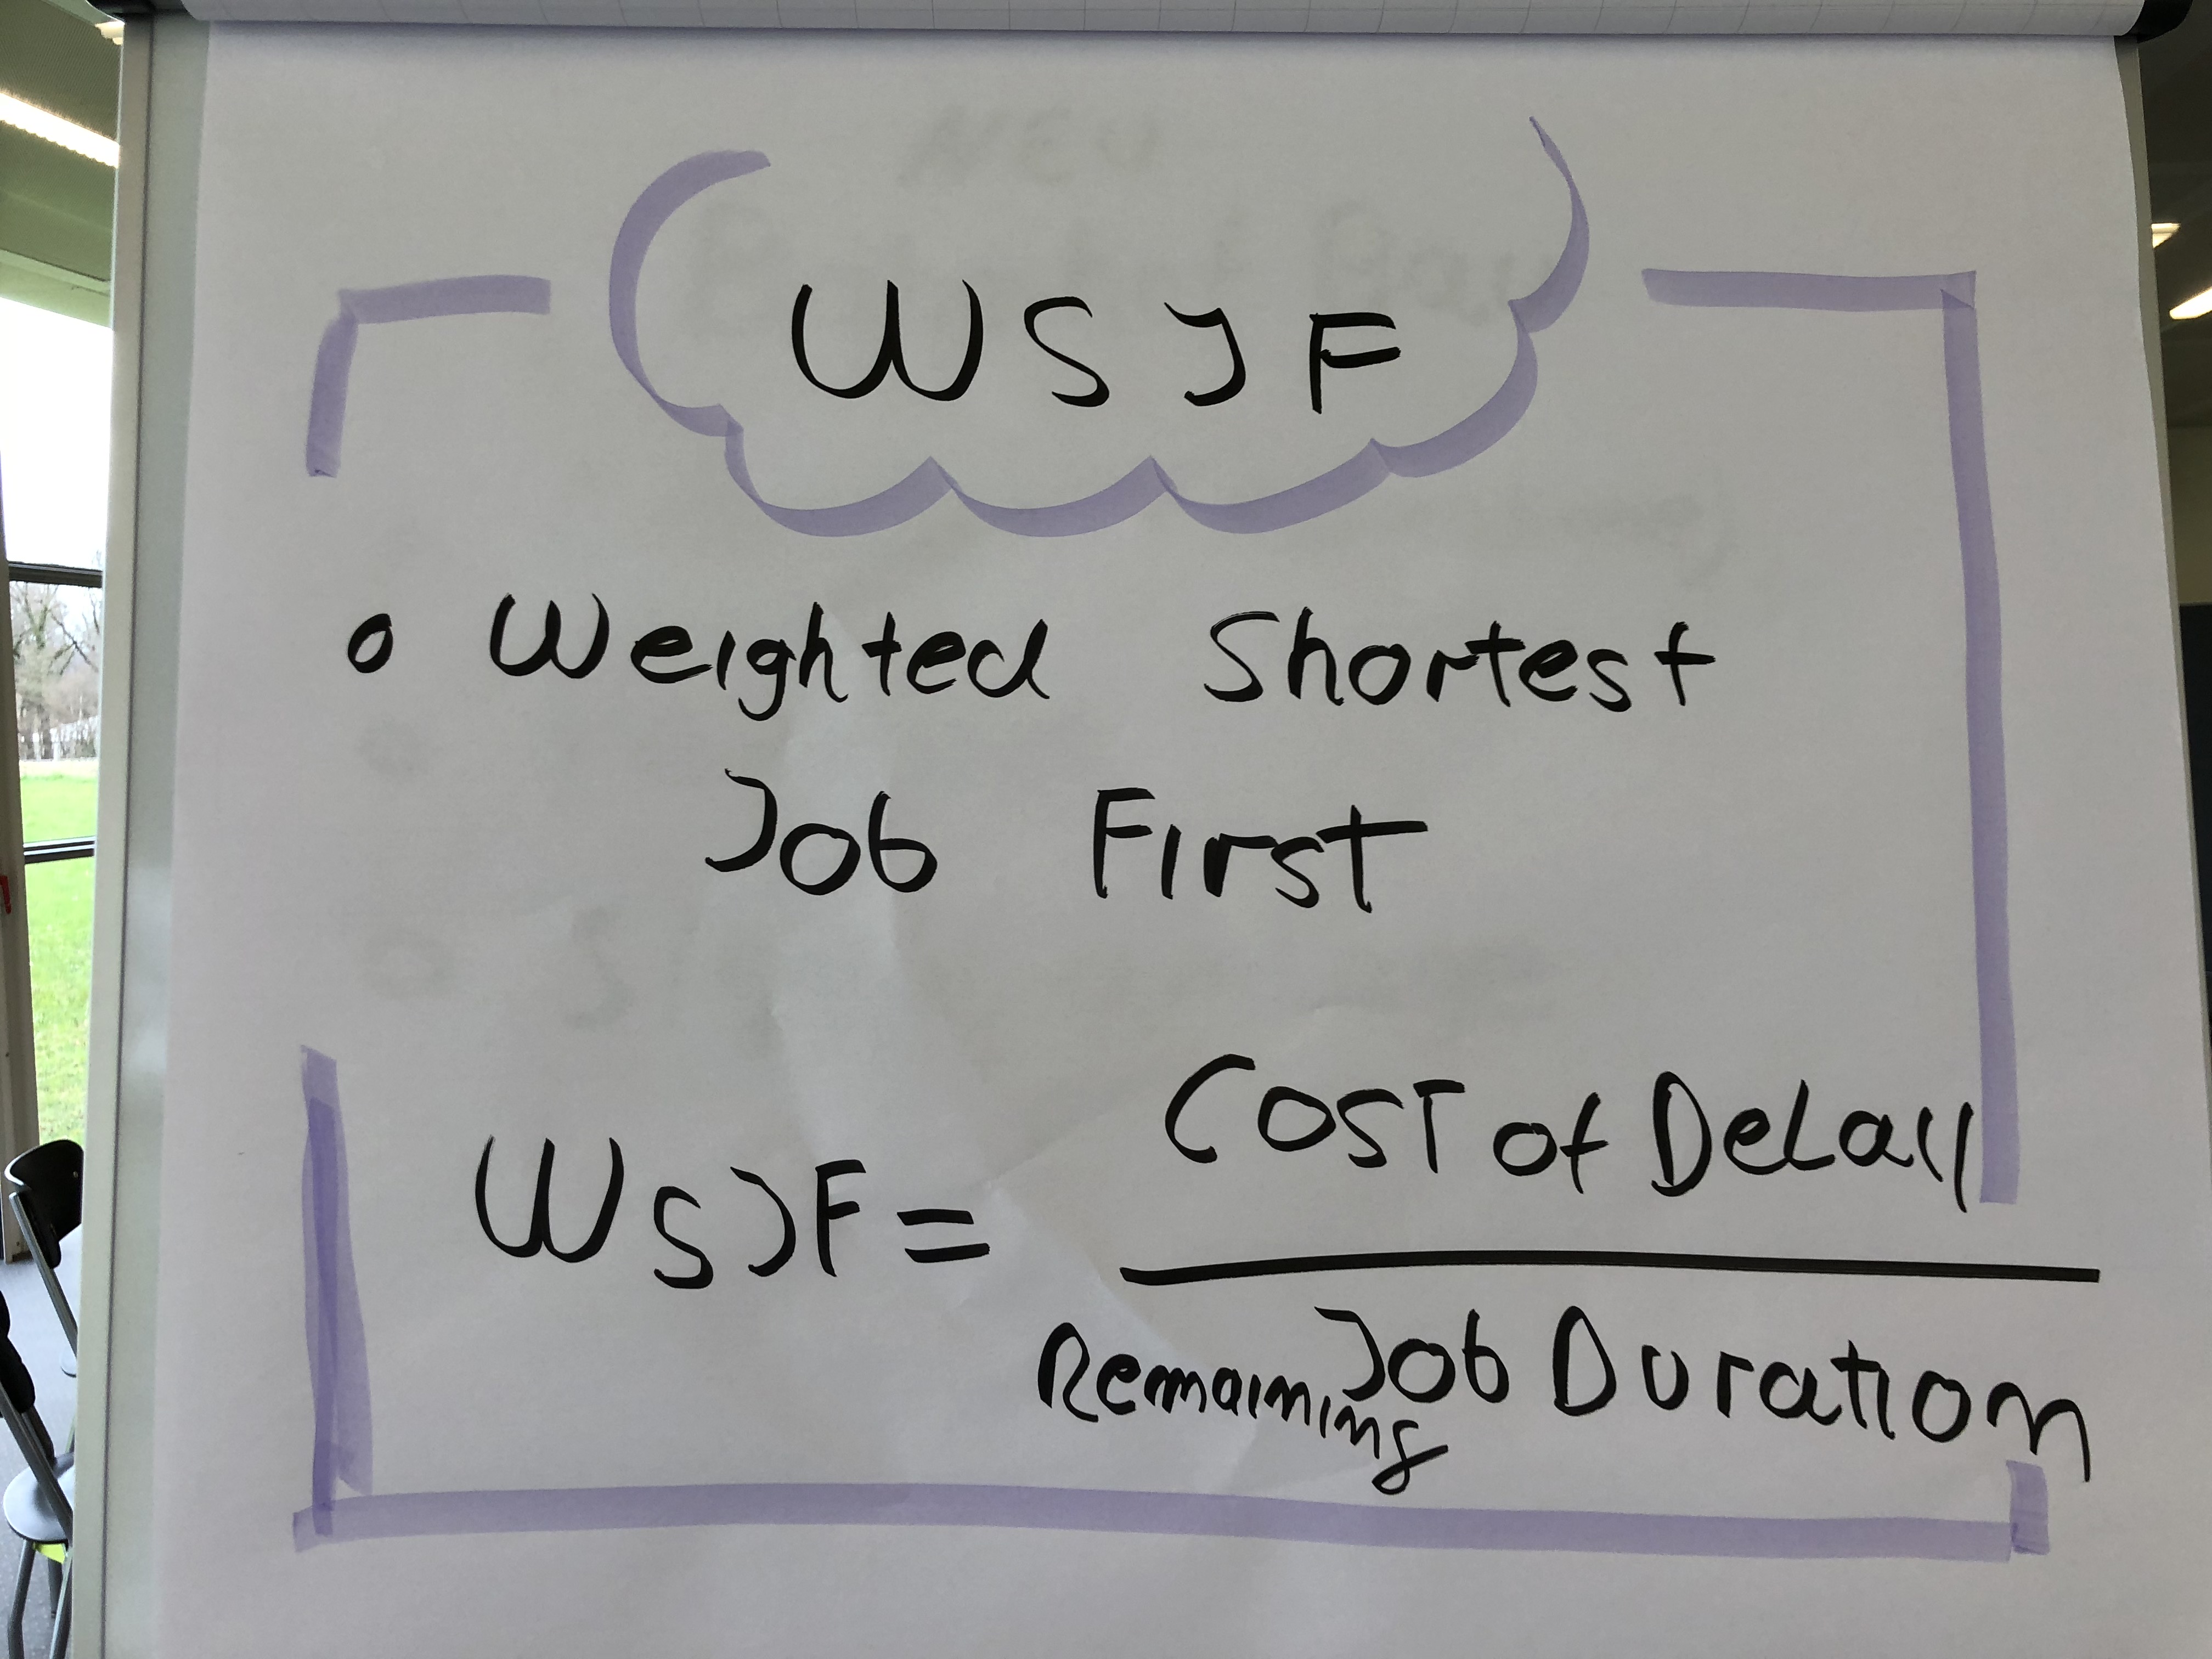 WSJF
o Weighted Shortest
Job First
WSJF = Cost of Delay
Remaining Job Duration